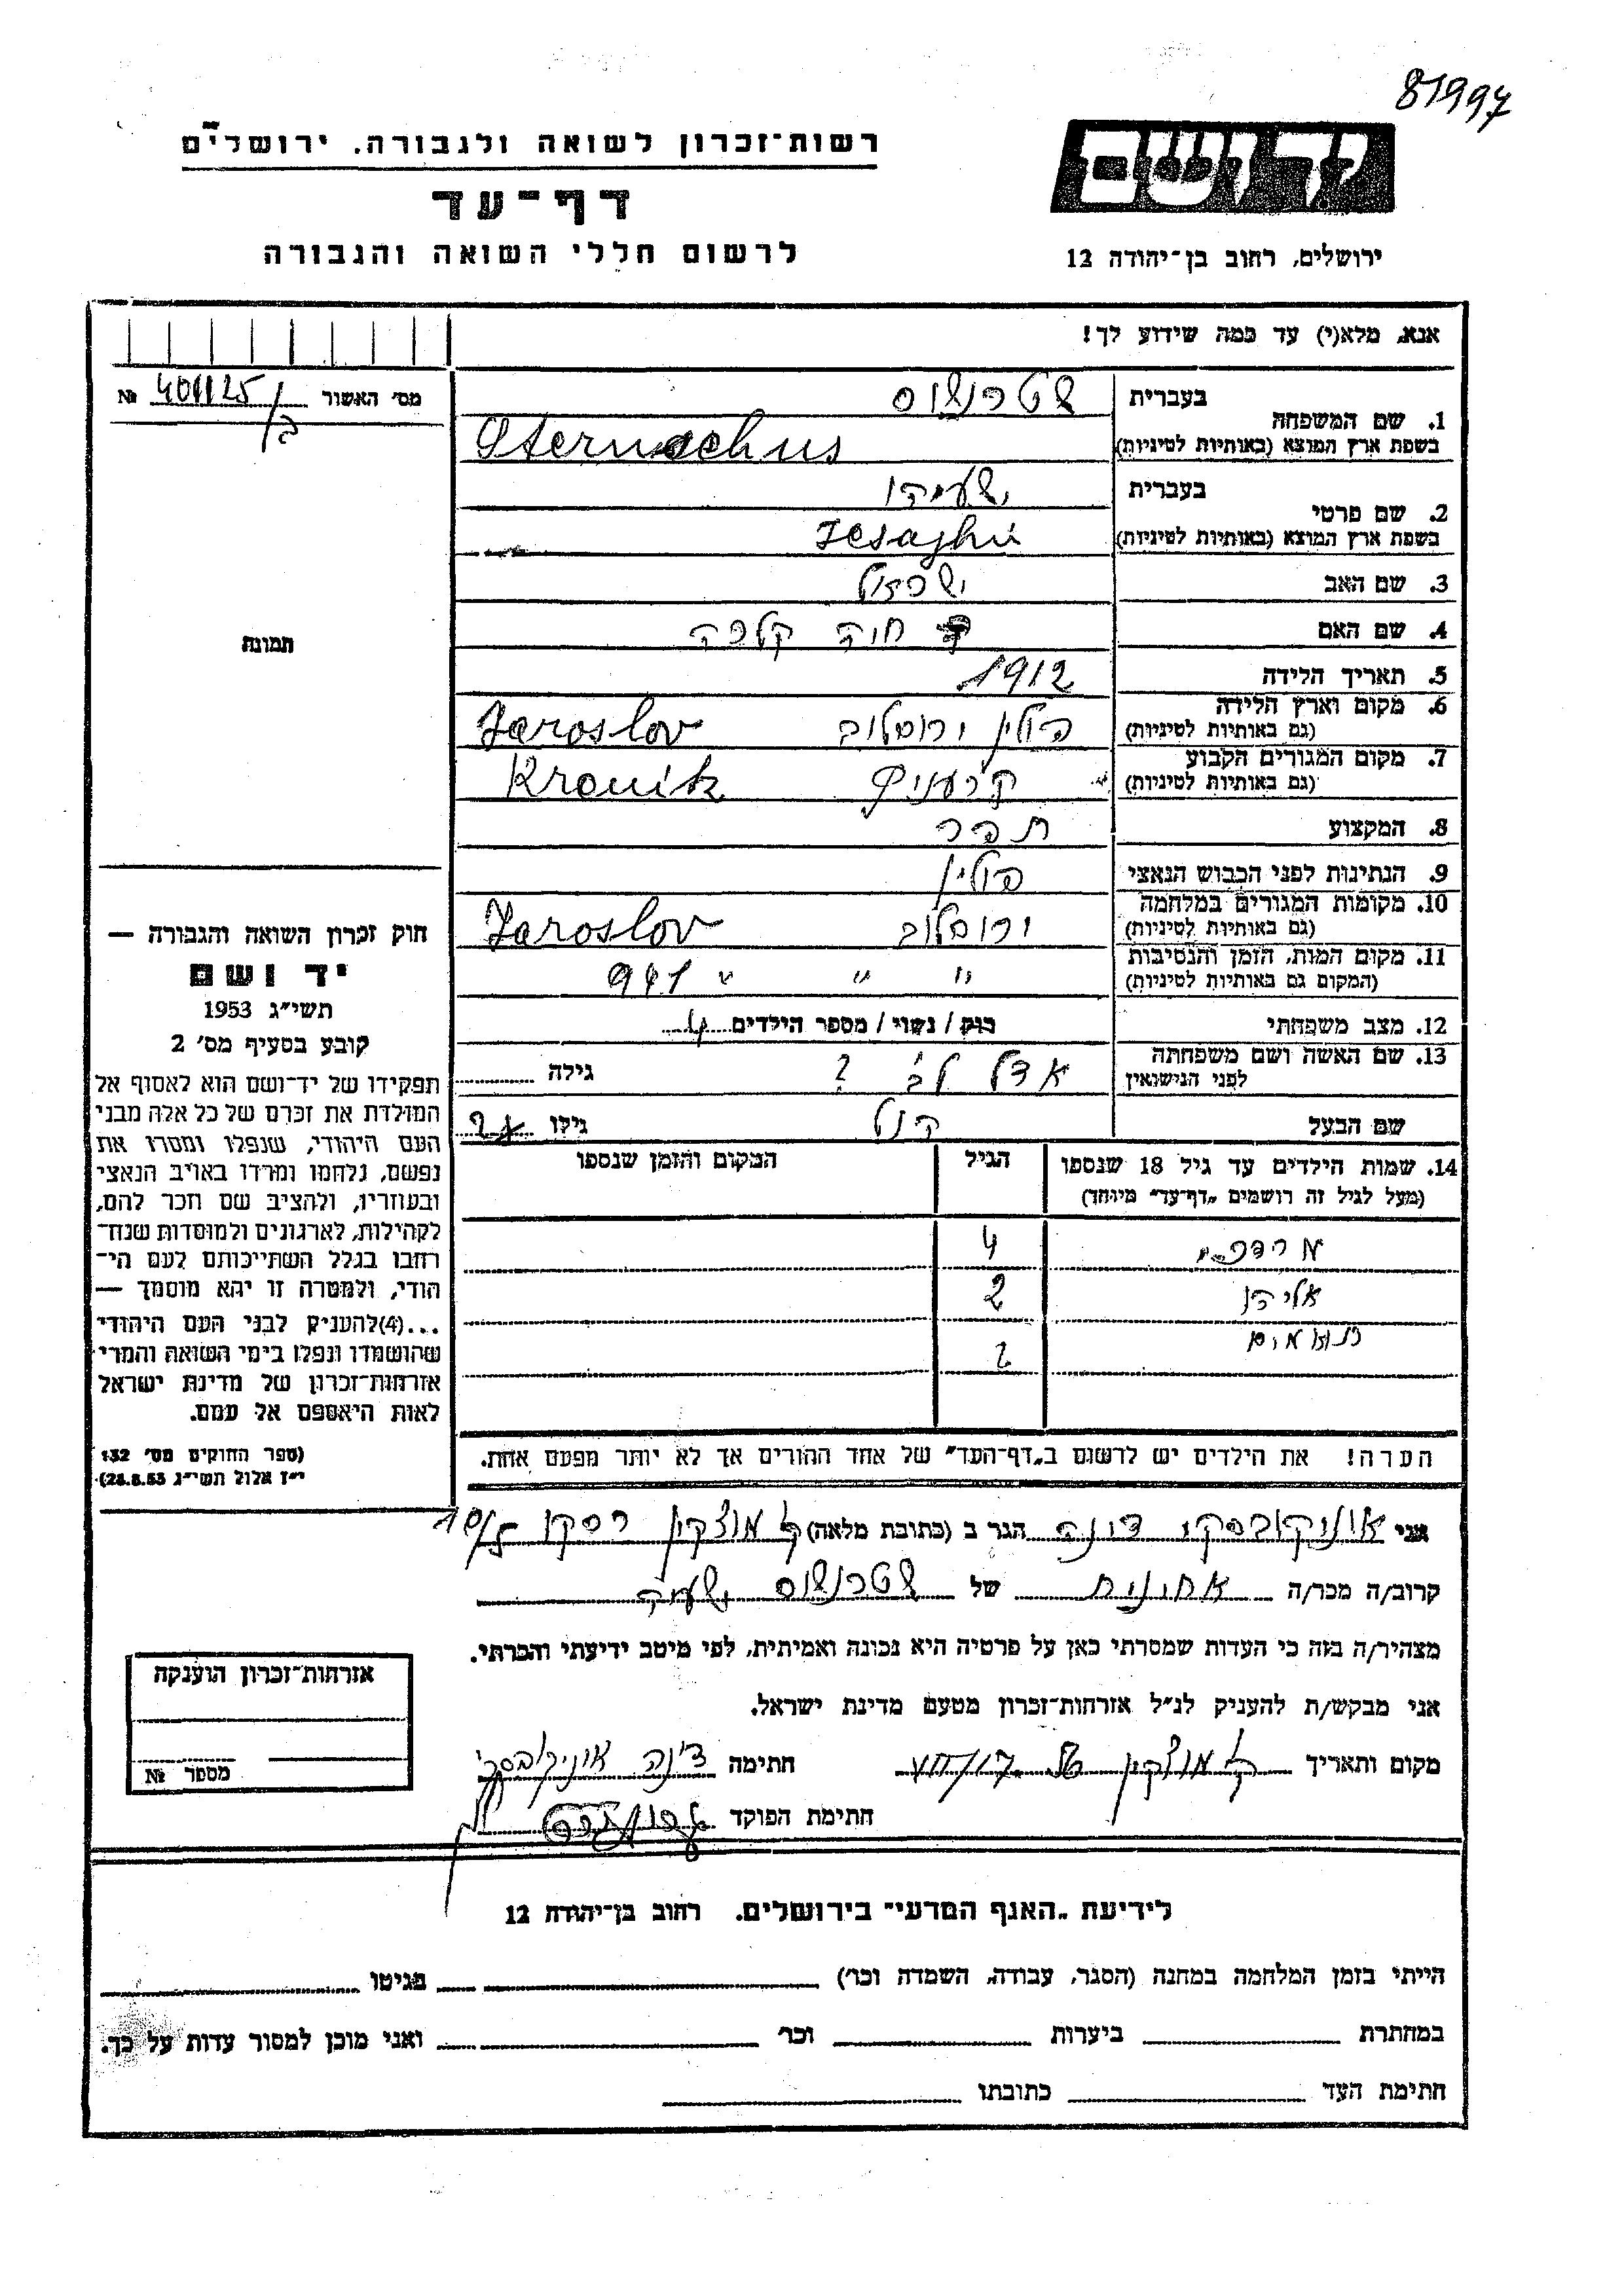 81997
רשות־זכרון לשואה ולגבורה, ירושלים
יד ושם
דף־עד
לרשום חללי השואה והגבורה
ירושלים, רחוב בן־יהודה 12
אנא, מלא(י) עד כמה שידוע לך!
מס׳ האשור 401125 №
ב/
1. שם המשפחה
בעברית שטרנשוס
בשפת ארץ המוצא (באותיות לטיניות) Sternschus
2. שם פרטי
בעברית ישעיהו
בשפת ארץ המוצא (באותיות לטיניות) Jesajhu
3. שם האב ישראל
4. שם האם חיה
5. תאריך הלידה 1912
6. מקום וארץ הלידה
(גם באותיות לטיניות) פולין ירוסלוב Jaroslov
7. מקום המגורים הקבוע
(גם באותיות לטיניות)
8. המקצוע
9. הנתינות לפני הכבוש הנאצי פולין
10. מקומות המגורים במלחמה
(גם באותיות לטיניות) ירוסלוב Jaroslov
11. מקום המות, הזמן והנסיבות
(המקום גם באותיות לטיניות) " " " 941
12. מצב משפחתי רוק / נשוי / מספר הילדים 4
13. שם האשה ושם משפחתה
לפני הנישואין אדל ? גילה
שם הבעל הנ״ל גילו
תמונה
14. שמות הילדים עד גיל 18 שנספו
(מעל לגיל זה רושמים „דף־עד״ מיוחד)
הגיל
המקום והזמן שנספו
מרדכי 4
אליהו 2
תאומים 2
הערה! את הילדים יש לרשום ב„דף־העד״ של אחד ההורים אך לא יותר מפעם אחת.
חוק זכרון השואה והגבורה —
יד ושם
תשי״ג 1953
קובע בסעיף מס׳ 2
תפקידו של יד־ושם הוא לאסוף אל
המולדת את זכרם של כל אלה מבני
העם היהודי, שנפלו ומסרו את
נפשם, נלחמו ומרדו באויב הנאצי
ובעוזריו, ולהציב שם וזכר להם,
לקהילות, לארגונים ולמוסדות שנח־
רחבו בגלל השתייכותם לעם הי־
הודי, ולמטרה זו יהא מוסמך —
...(4)להעניק לבני העם היהודי
שהושמדו ונפלו בימי השואה והמרי
אזרחות־זכרון של מדינת ישראל
לאות היאספם אל עמם.
(ספר החוקים מס׳ 132
י״ז אלול תשי״ג 28.8.53)
אני אוניקובסקי דינה הגר ב (כתובת מלאה) ק מוצקין
קרוב/ה מכר/ה אחינית של שטרנשוס ישעיה
מצהיר/ה בזה כי העדות שמסרתי כאן על פרטיה היא נכונה ואמיתית, לפי מיטב ידיעתי והכרתי.
אני מבקש/ת להעניק לנ״ל אזרחות־זכרון מטעם מדינת ישראל.
מקום ותאריך ק מוצקין חתימה דינה אוניקובסקי
חתימת הפוקד
אזרחות־זכרון הוענקה
מספר №
לידיעת „האגף המדעי״ בירושלים. רחוב בן־יהודה 12
הייתי בזמן המלחמה במחנה (הסגר, עבודה, השמדה וכר׳) בגיטו
במחתרת ביערות וכר׳ ואני מוכן למסור עדות על כך.
חתימת העד כתובתו